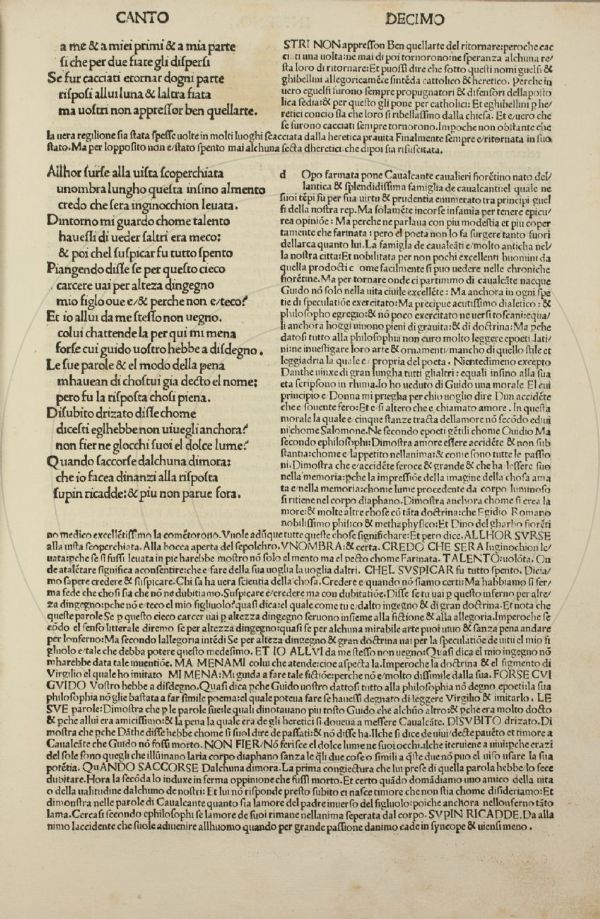 CANTO DECIMO
a me & a miei primi & a mia parte
si che per due fiate gli dispersi
Se fur cacciati etornar dogni parte
risposi allui luna & laltra fiata
ma uostri non appressor ben quellarte.
STRI NON appresson Ben quellarte del ritornare: peroche cac
ti una uolta: ne mai di poi tornorono: ne speranza alchuna re
sta loro di ritornare: Et puossi dire che sotto questi nomi guelfi &
ghibellini allegoricaméce sintéda cattholico & heretico. Perche in
uero eguelfi furono sempre propugnatori & difensori della posto
lica sedia: & per questo gli pone per catholici: Et eghibellini p he/
retici concio sia che loro si ribellassino dalla chiesa. Et e/uero che
se furono cacciati sempre tornorono. Impoche non obstante che
la uera regilione sia stata spesse uolte in molti luoghi scacciata dalla heretica prauita Finalmente sempre e/ritornata in suo
stato. Ma per lopposito non e/stato spento mai alchuna secta dheretici che dipoi sia risuscitata.
Allhor surse alla uista scoperchiata
unombra lungho questa insino almento
credo che sera inginocchion leuata.
Dintorno mi guardo chome talento
hauessi di ueder saltri era meco:
& poi chel suspicar fu tutto spento
Piangendo disse se per questo cieco
carcere uai per alteza dingegno
mio figlo oue e/& perche non e/teco?
Et io allui da me stesso non uegno.
colui chattende la per qui mi mena
forse cui guido uostro hebbe a disdegno.
Le sue parole & el modo della pena
mhauean di chostui gia decto el nome:
pero fu la risposta chosi piena.
Disubito drizato disse chome
dicesti eglhebbe non uiuegli anchora?
non fier ne glocchi suoi el dolce lume?
Quando saccorse dalchuna dimora:
che io facea dinanzi alla risposta
supin ricadde: & piu non parue fora.
d Opo farinata pone Caualcante caualieri fioretino nato del/
lantica & splendidissima famiglia de caualcanti: el quale ne
suoi tépi fu per sua uirtu & prudentia enumerato tra principi guel
fi della nostra rep. Ma solaméte incorse infamia per tenere epicu/
rea opinióe: Ma perche ne parlaua con piu modestia et piu coper
tamente che farinata: pero el poeta non lo fa surgere tanto fuori
dellarca quanto lui. La famiglia de caualcáti e/molto anticha nel/
la nostra citta: Et nobilitata per non pochi excellenti huomini da
quella prodocti come facilmente si puo uedere nelle chroniche
fiorétine. Ma per tornare onde ci partimmo di caualcáte nacque
Guido nó solo nella uita ciuile excellére: Ma anchora in ogni spe
tie di speculatióe exercitato: Ma precipue acutissimo dialetico: &
philosopho egregio: & nó poco exercitato ne uersi toscani: equa/
li anchora hoggi uinono pieni di grauita: & di doctrina: Ma pche
datosi tutto alla philosophia non curo molto leggere epoeti lati/
ni: ne inuestigare loro arte & ornamenti: mancho di quello stile et
leggiadria la quale e propria del poeta. Nientedimeno excepto
Danthe uinxe di gran lungha tutti glaltri: equali insino alla sua
eta scripsono in rhima. Io ho ueduto di Guido una morale El cui
principio e Donna mi priegha per chio uoglio dire Dun accidéte
che e souente fero: Et e si altero che e chiamato amore. In questa
morale la quale e cinque stanze tracta dellamore nó secódo ediui
ni chome Salomone. Ne secondo epoeti gétili chome Ouidio Ma
secondo ephilosophi: Dimostra amore essere accidéte & non sub
stantia: chome e lappetito nellanima: & come sono tutte le passio
ni. Dimostra che e/accidéte feroce & grande & che ha lessere suo
nella memoria: pche la impressióe della imagine della chosa ama
ta e/nella memoria: chome lume procedente da corpo luminoso
si ritiene nel corpo diaphano. Dimostra anchora chome si crea la
more: & molte altre chose có tanta doctrina: che Egidio Romano
nobilissimo phisico & methaphysico: Et Dino del gharbo fioréti
no medico excelléttissimo la cométorono. Vuole adúque tutte queste chose significhare: Et pero dice. ALLHOR SVRSE
alla uista scoperchiata. Alla bocca aperta del sepolchro. VNOMBRA: & certa. CREDO CHE SERA Inginochion le
uata: pche se si fussi leuata in pie harebbe mostro nó solo el mento ma el pecto chome Farinata. TALENTO: uolóta. On
de atalétare significa aconsentire: che e fare della sua uoglia la uoglia daltri. CHEL SVSPICAR fu tutto spento. Dicia/
mo sapere credere & suspicare. Chi sa ha uera scientia della chosa. Credere e quando nó siamo certi: Ma habbiamo si fer/
ma fede che chosi sia che nó ne dubitiamo. Suspicare e/credere ma con dubitatióe. Disse se tu uai p questo inferno per alte/
za dingegno: pche nó e teco el mio figliuolo? quasi dica: el quale come tu e dalto ingegno & di gran doctrina. Et nota che
queste parole Se p questo cieco carcer uai p alteza dingegno seruono insieme alla fictione & alla allegoria. Imperoche se
códo el senso litterale diremo se per alteza dingegno: quasi se per alchuna mirabile arte puoi uiuo & sanza pena andare
per lonferno: Ma secondo lallegoria intédi Se per alteza dingegno & gran doctrina uai per la speculatióe de uitii el mio fi
gliuolo e tale che debba potere questo medesimo. ET IO ALLVI da me stesso non uegno: Quasi dica el mio ingegno nó
mharebbe data tale inuentióe. MA MENAMI colui che atende: cioe aspecta la. Imperoche la doctrina & el figmento di
Virgilio el quale ho imitato MI MENA: Mi guida a fare tale fictióe: perche nó e/molto dissimile dalla sua. FORSE CVI
GVIDO Vostro hebbe a disdegno. Quasi dica pche Guido nostro dattosi tutto alla philosophia nó degno epoeti: la sua
philosophia nó glie bastata a far simile poema: el quale poteua fare se hauessi degnato di leggere Virgilio & imitarlo. LE
SVE parole: Dimostra che p le parole suele quali dinotauano piu tosto Guido che alchúo altro: & pche era molto docto
& pche allui era amicissimo: & la pena la quale era de gli heretici si doueua a messere Caualcáte. DISVBITO drizato. Di
mostra che pche Dáthe disse hebbe chome si suol dire de passati: & nó disse ha. Ilche si dice de uiui / decte pauéto et timore a
Caualcáte che Guido nó fussi morto. NON FIER / Nó ferisce el dolce lume ne suoi occhi. ilche iteruiene a uiui: pche erazi
del sole sono quegli che illúinano laria corpo diaphano sanza le qli due cose o simili a qste due nó puo el uiso usare la sua
potétia. QUANDO SACCORSE Dalchuna dimora. La prima congiectura che lui prese di quella parola hebbe: lo fece
dubitare. Hora la secóda lo induxe in ferma oppinione che fussi morto. Et certo quádo domádiamo uno amico della uita
o della ualitudine dalchuno de nostri: Et lui nó risponde presto subito ci nasce timore che non stia chome disideriamo: Et
dimostra nelle parole di Caualcante quanto sia lamore del padre inuerso del figluolo: poiche anchora nellonferno táto
lama. Cerca si secondo ephilosophi se lamore de suoi rimane nellanima seperata dal corpo. SVPIN RICADDE. Da alla
nima laccidente che suole aduenire allhuomo quando per grande passione danimo cade in syncope & uiensi meno.